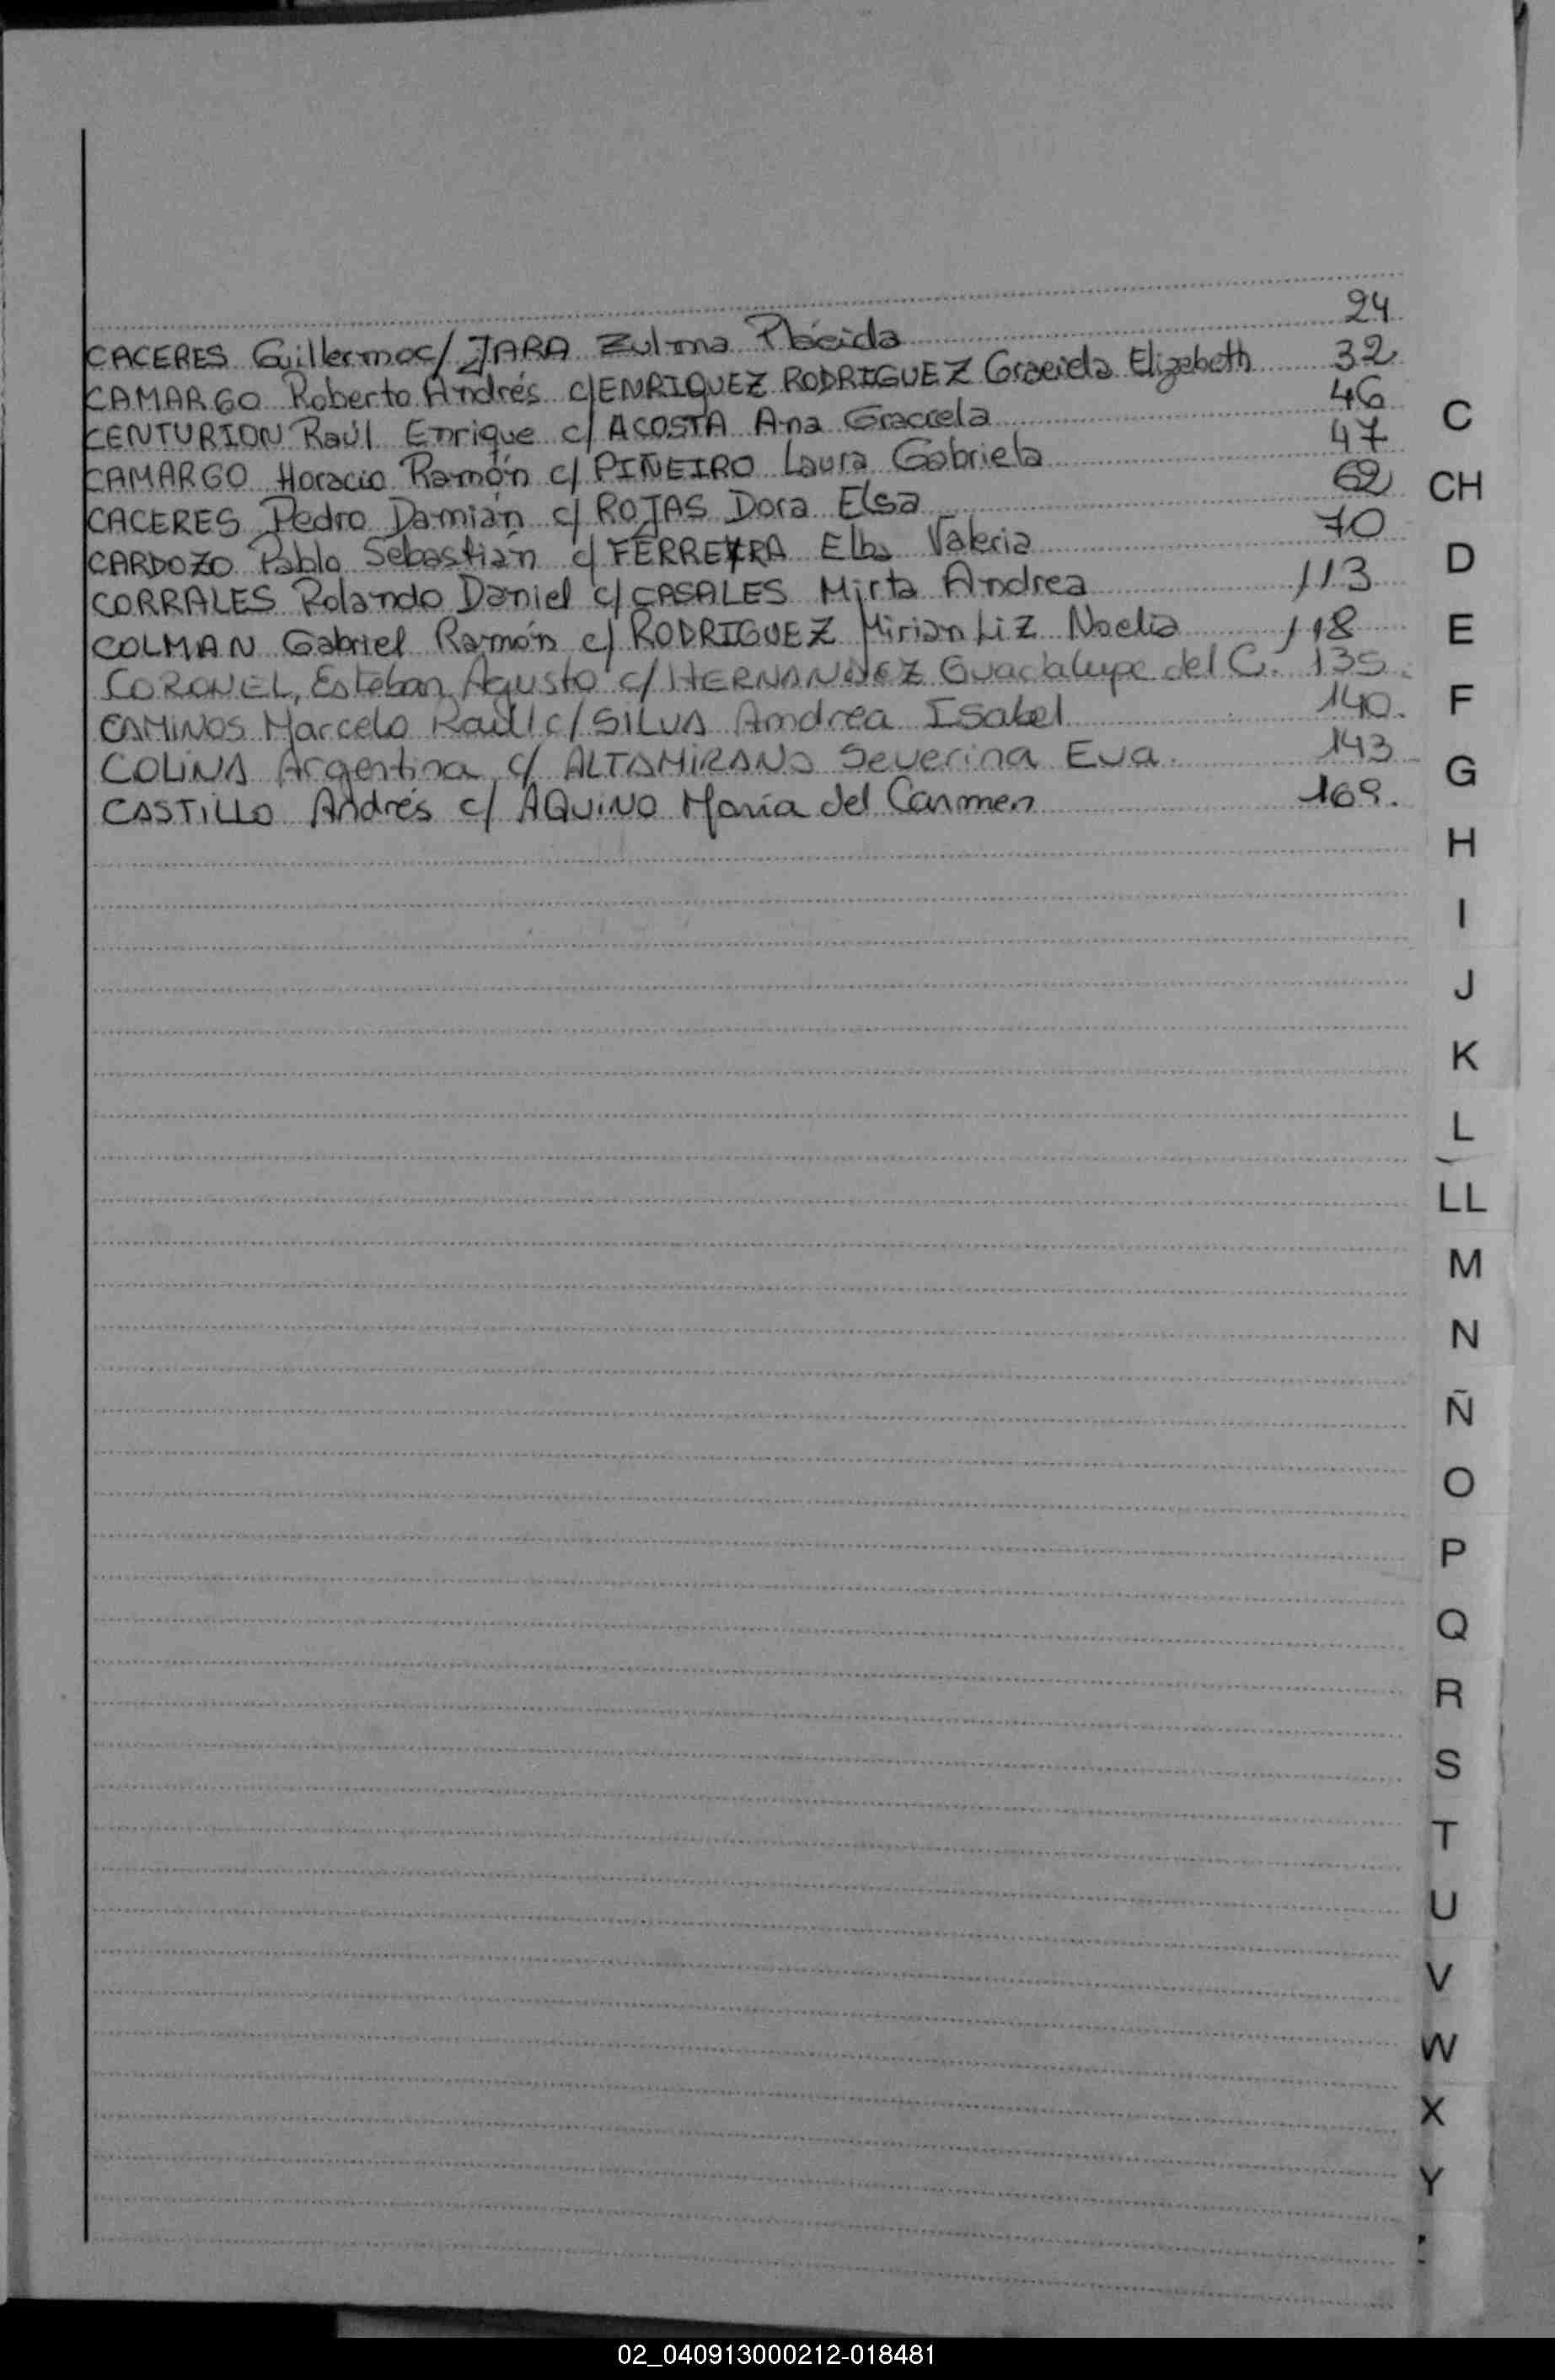 CACERES Guillermo c/ JARA Zulma Plácida 24
CAMARGO Roberto Andrés c/ ENRIQUEZ RODRIGUEZ Graciela Elizabeth 32
CENTURION Raúl Enrique c/ ACOSTA Ana Graciela 46
CAMARGO Horacio Ramón c/ PIÑEIRO Laura Gabriela 47
CACERES Pedro Damián c/ ROJAS Dora Elsa 62
CARDOZO Pablo Sebastián c/ FERREYRA Elba Valeria 70
CORRALES Rolando Daniel c/ CASALES Mirta Andrea 113
COLMAN Gabriel Ramón c/ RODRIGUEZ Mirian Liz Noelia 118
CORONEL, Esteban Agusto c/ HERNANDEZ Guadalupe del C. 135.
CAMINOS Marcelo Raúl c/ SILVA Andrea Isabel 140.
COLINA Argentina c/ ALTAMIRANO Severina Eva. 143
CASTILLO Andrés c/ AQUINO María del Carmen 169.
C
CH
D
E
F
G
H
I
J
K
L
LL
M
N
Ñ
O
P
Q
R
S
T
U
V
W
X
Y
02_040913000212-018481